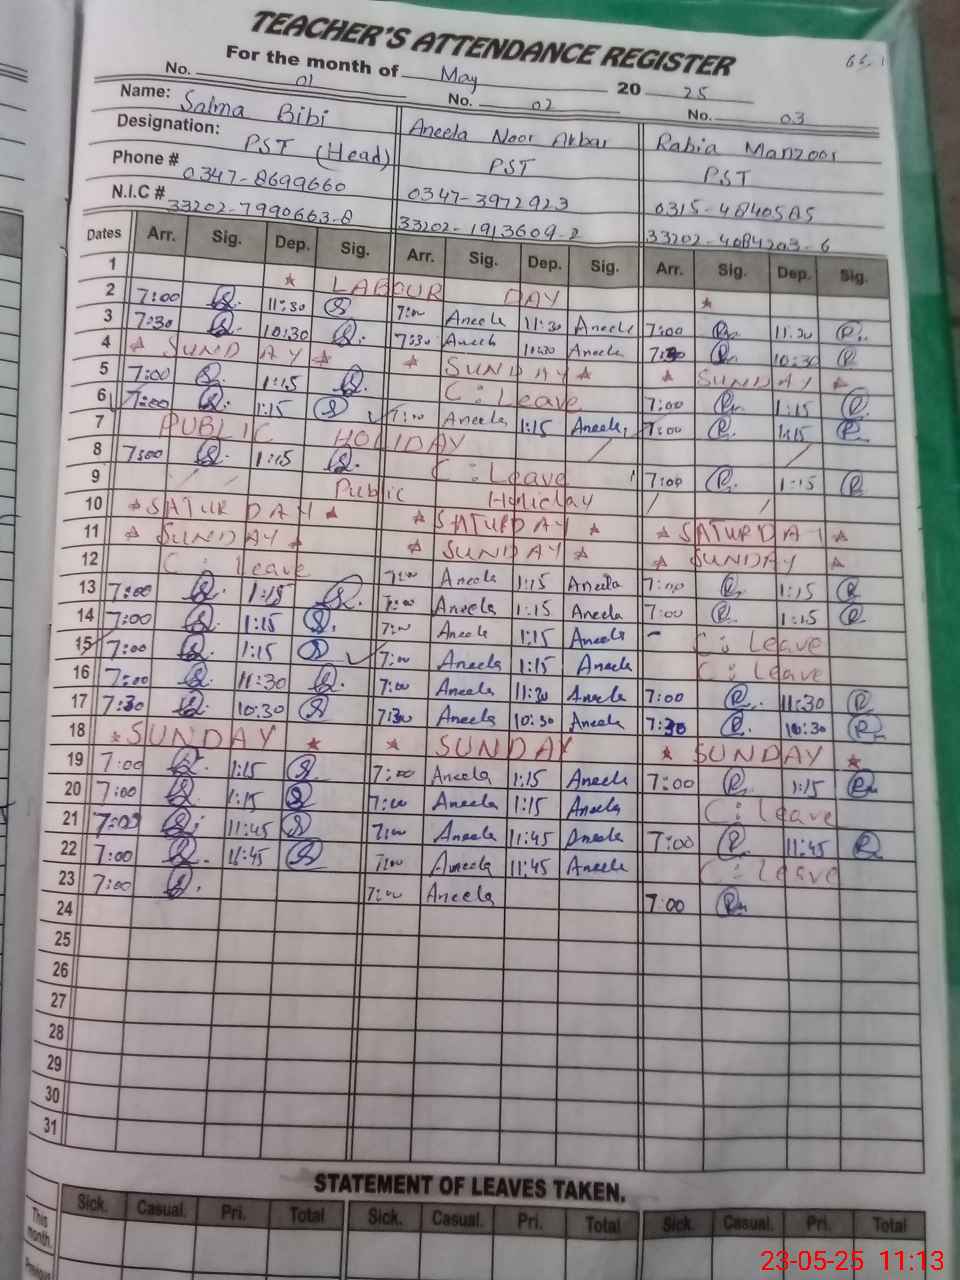 TEACHER'S ATTENDANCE REGISTER
For the month of May 20 25
No. 01 No. 02 No. 03
Name: Salma Bibi Aneela Noor Akbar Rabia Manzoor
Designation: PST (Head) PST PST
Phone # 0347-8699660 0347-3972923 0315-
N.I.C # 33202-7990663-8 33202-1913609-2 33202-4084203-6
Dates Arr. Sig. Dep. Sig. Arr. Sig. Dep. Sig. Arr. Sig. Dep. Sig.
1 * LABOUR DAY *
2 7:00 11:30 7:00 Aneela 11:30 Aneela 7:00 11:30
3 7:30 10:30 7:30 Aneela 10:30 Aneela 7:30 10:30
4 * SUNDAY * * SUNDAY * * SUNDAY *
5 7:00 1:15 C: Leave 7:00 1:15
6 7:00 1:15 7:00 Aneela 1:15 Aneela 7:00 1:15
7 PUBLIC HOLIDAY
8 7:00 1:15 C: Leave 7:00 1:15
9 Public Holiday
10 * SATURDAY * * SATURDAY * * SATURDAY *
11 * SUNDAY * * SUNDAY * * SUNDAY *
12 C: Leave 7:00 Aneela 1:15 Aneela 7:00 1:15
13 7:00 1:15 7:00 Aneela 1:15 Aneela 7:00 1:15
14 7:00 1:15 7:00 Aneela 1:15 Aneela C: Leave
15 7:00 1:15 7:00 Aneela 1:15 Aneela C: Leave
16 7:00 11:30 7:00 Aneela 11:30 Aneela 7:00 11:30
17 7:30 10:30 7:30 Aneela 10:30 Aneela 7:30 10:30
18 * SUNDAY * * SUNDAY * SUNDAY *
19 7:00 1:15 7:00 Aneela 1:15 Aneela 7:00 1:15
20 7:00 1:15 7:00 Aneela 1:15 Aneela C: Leave
21 7:00 11:45 7:00 Aneela 11:45 Aneela 7:00 11:45
22 7:00 11:45 7:00 Aneela 11:45 Aneela C: Leave
23 7:00 7:00 Aneela 7:00
24
25
26
27
28
29
30
31
STATEMENT OF LEAVES TAKEN.
Sick. Casual. Pri. Total Sick. Casual. Pri. Total Sick. Casual. Pri. Total
This month.
Previous
23-05-25 11:13